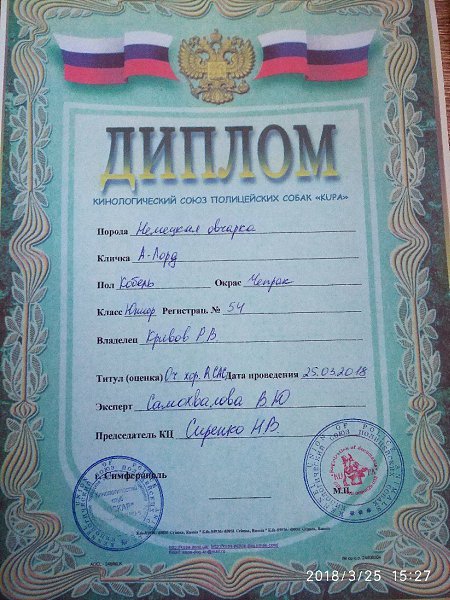 ДИПЛОМ
КИНОЛОГИЧЕСКИЙ СОЮЗ ПОЛИЦЕЙСКИХ СОБАК «KUPA»
Порода Немецкая овчарка
Кличка А-Лорд
Пол Кобель Окрас Чепрак
Класс Юниор Регистрац. № 54
Владелец Кривов Р.В
Титул (оценка) Оч хор. R.CAC Дата проведения 25.03.2018
Эксперт Самохвалова В.Ю
Председатель КЦ Сиренко Н.В.
г. Симферополь
М.П.
2018/3/25 15:27